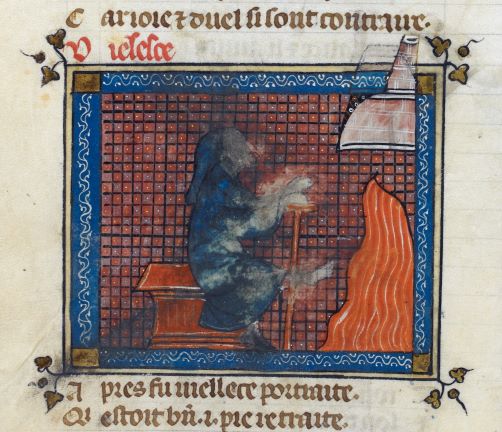 C ar ioie ⁊ duel si sont contraire.
V ielesce
A pres fu uiellece portraite.
Q̃ estoit bn̄ .i. pie retraite.